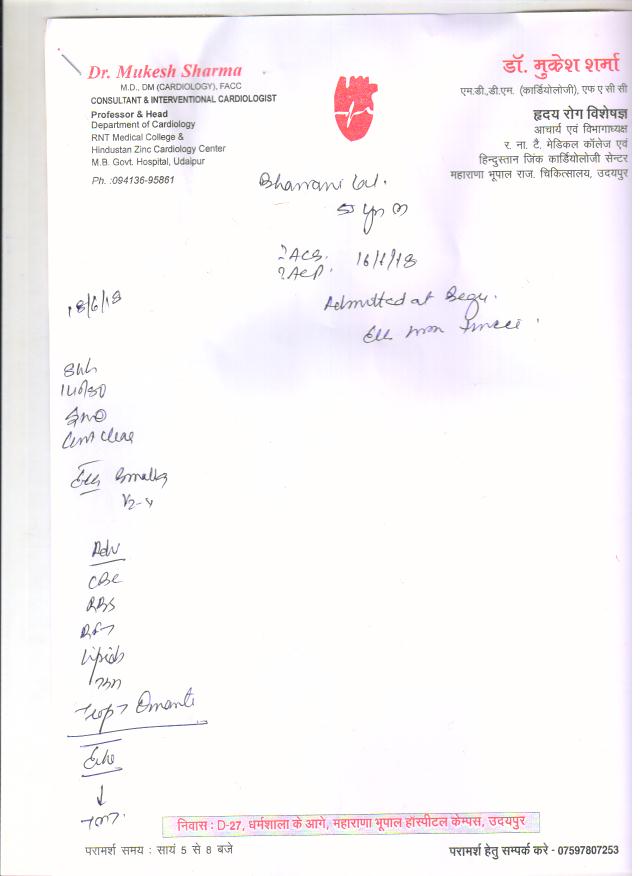 Dr. Mukesh Sharma
M.D., DM (CARDIOLOGY), FACC
CONSULTANT & INTERVENTIONAL CARDIOLOGIST
Professor & Head
Department of Cardiology
RNT Medical College &
Hindustan Zinc Cardiology Center
M.B. Govt. Hospital, Udaipur
Ph. :094136-95861
डॉ. मुकेश शर्मा
एम.डी.,डी.एम. (कार्डियोलोजी), एफ ए सी सी
हृदय रोग विशेषज्ञ
आचार्य एवं विभागाध्यक्ष
र. ना. टै. मेडिकल कॉलेज एवं
हिन्दुस्तान जिंक कार्डियोलोजी सेन्टर
महाराणा भूपाल राज. चिकित्सालय, उदयपुर
?ACS.
?ACP.
18/6/18
Admitted at Begu.
140/80
Clear
V2-4
Adv
CBC
RBS
RFT
Lipids
Trop T
Echo
↓
TMT.
निवास : D-27, धर्मशाला के आगे, महाराणा भूपाल हॉस्पीटल केम्पस, उदयपुर
परामर्श समय : सायं 5 से 8 बजे
परामर्श हेतु सम्पर्क करे - 07597807253